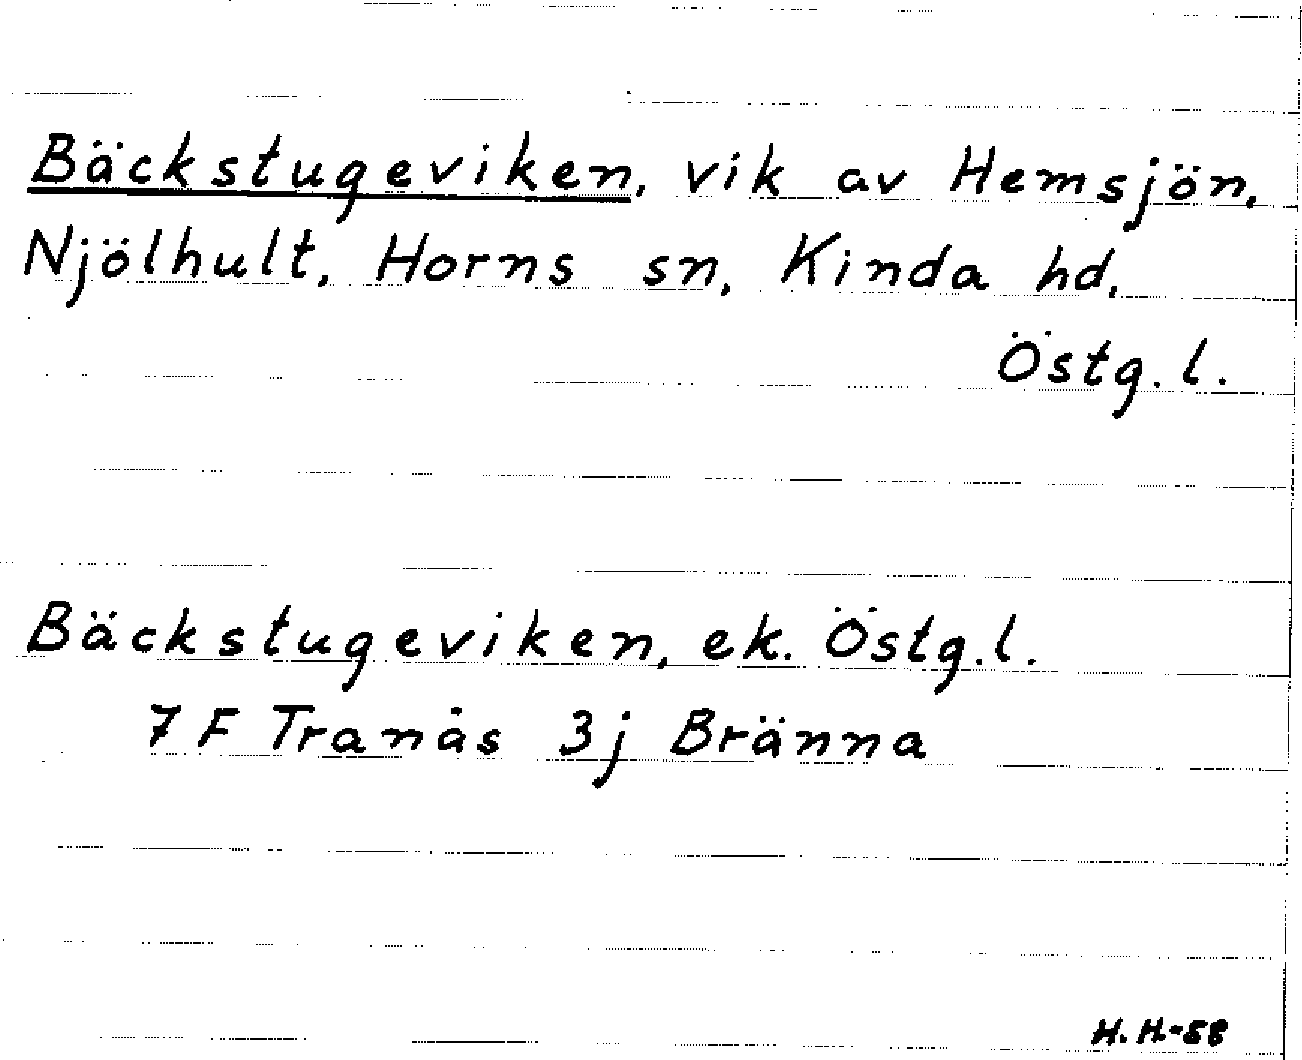 Bäckstugeviken, vik av Hemsjön,
Njölhult, Horns sn, Kinda hd,
Östg. l.
Bäckstugeviken, ek. Östg. l.
7 F Tranås 3j Bränna
H. H-58